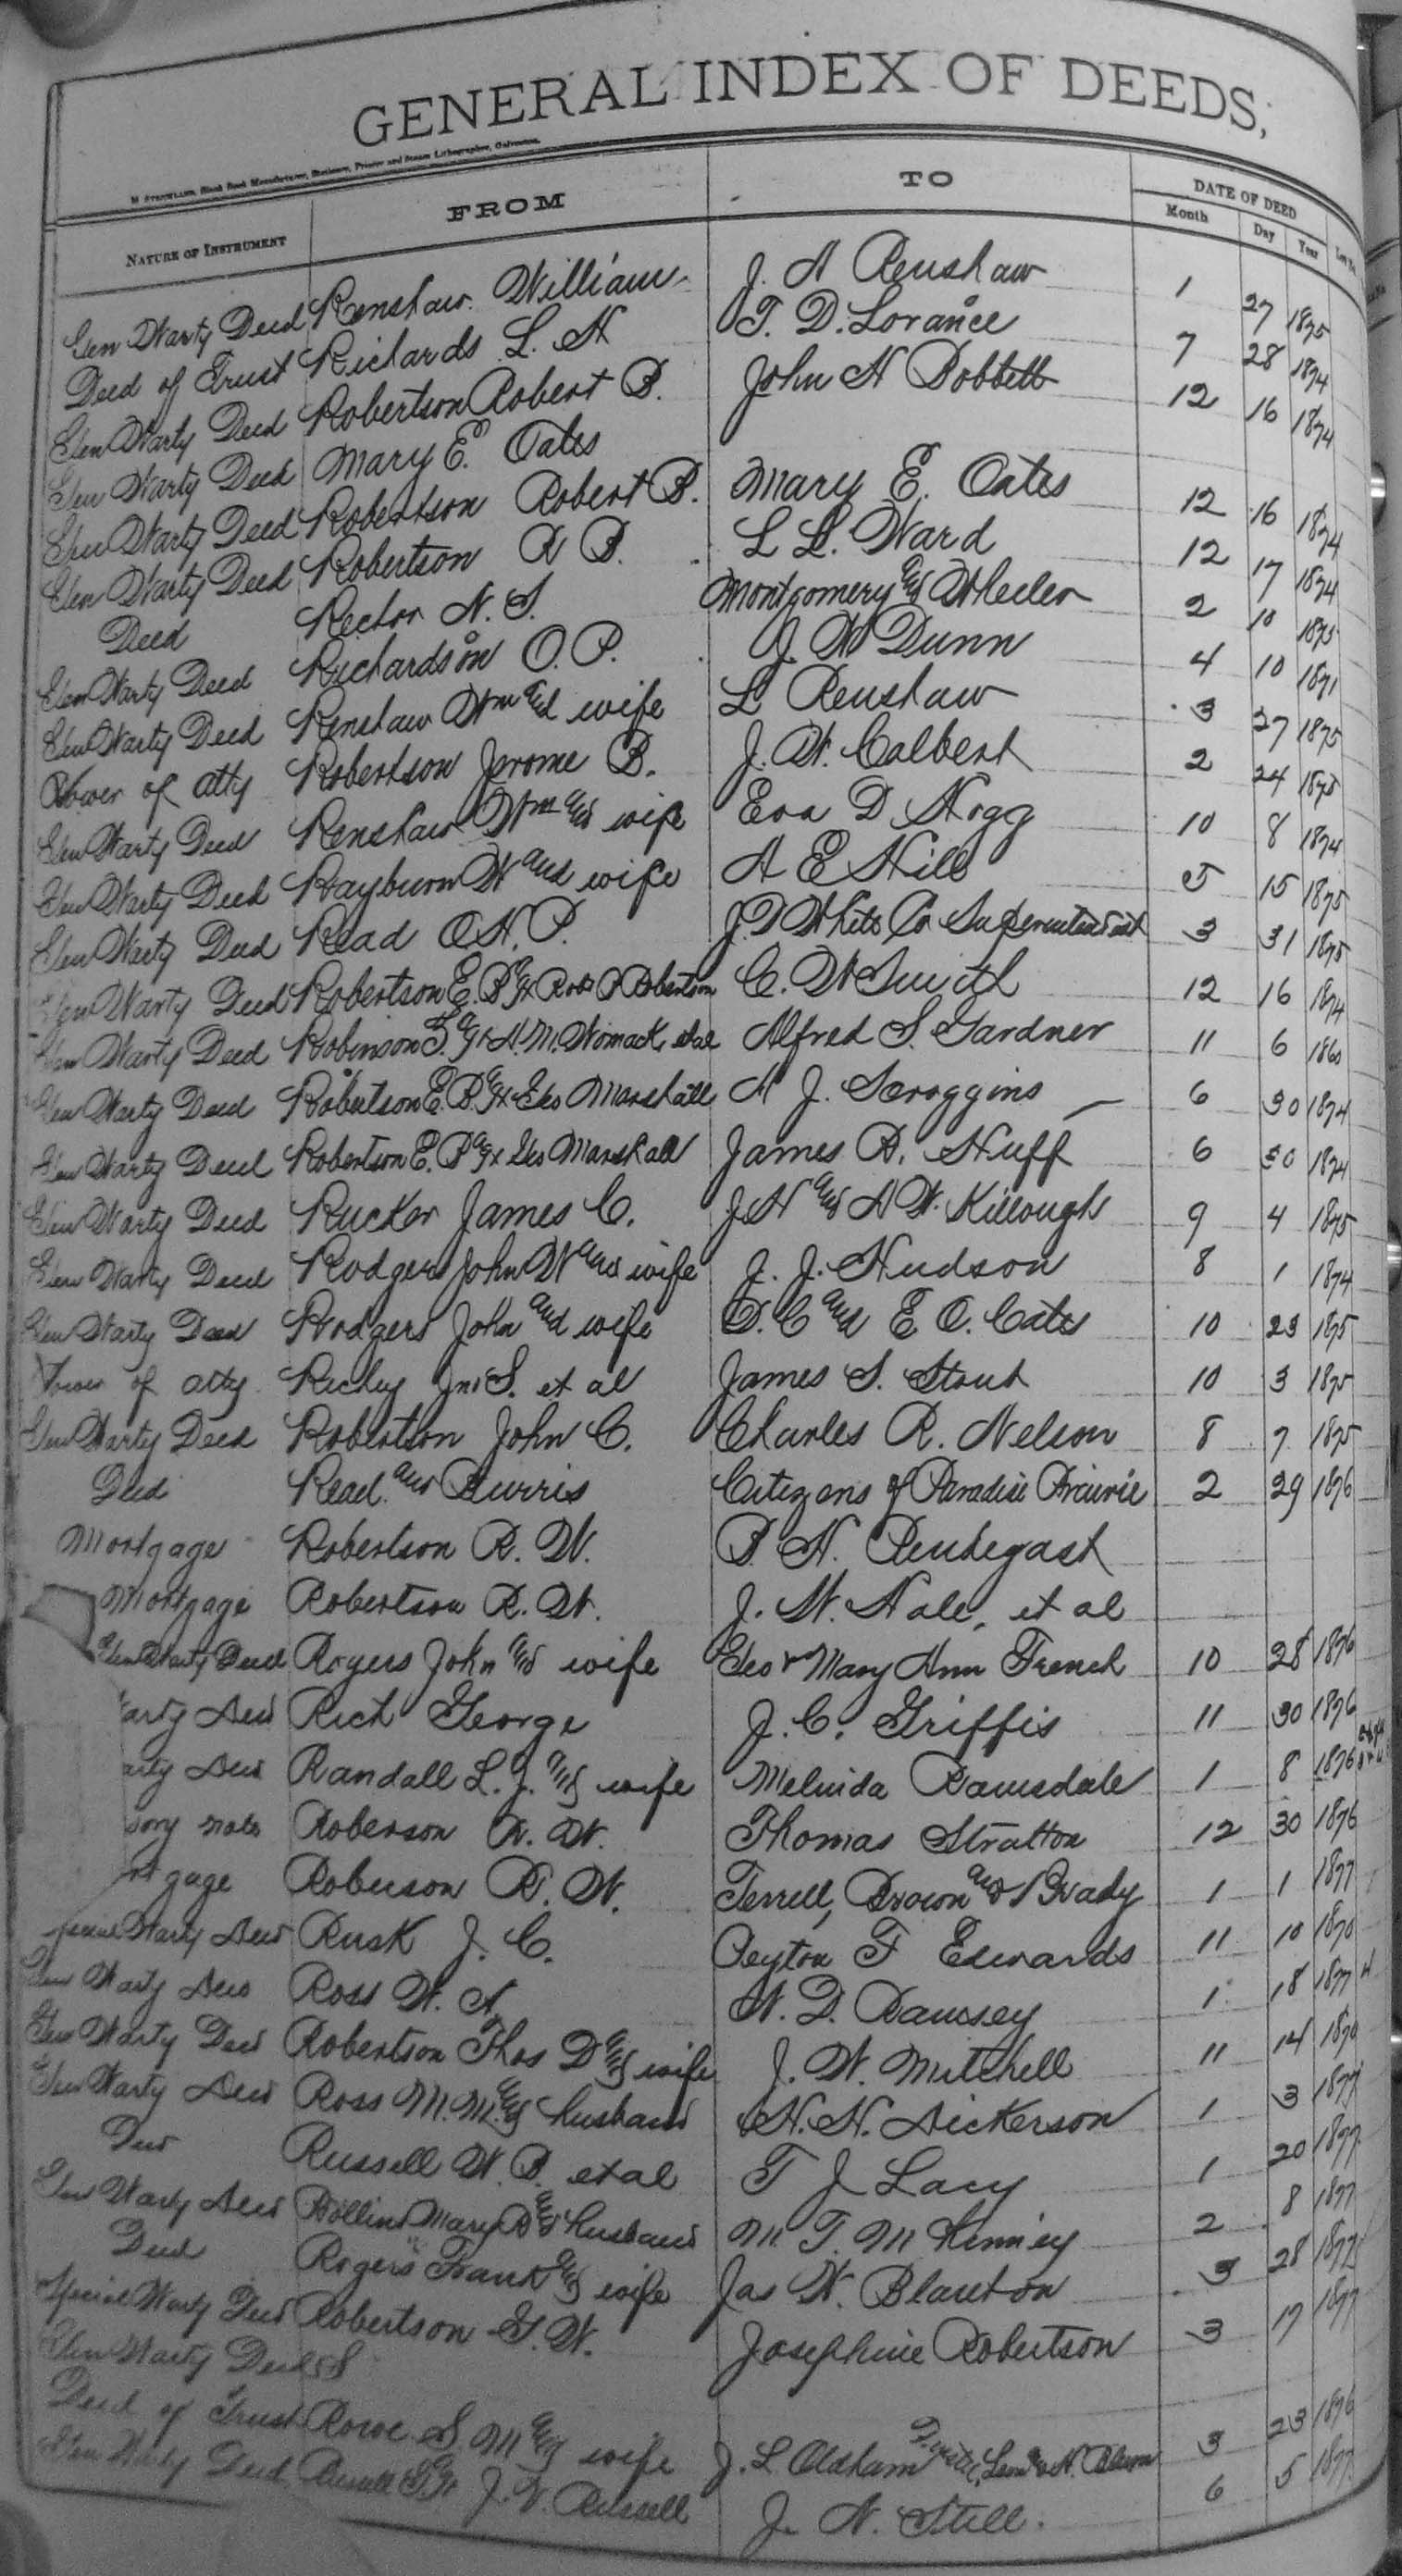 GENERAL INDEX OF DEEDS,
FROM TO DATE OF DEED
NATURE OF INSTRUMENT Month Day Year
Gen Warty Deed Renshaw William J. A Renshaw 1 27 1875
Deed of Trust Richards L. H T. D. Lorance 7 28 1874
Gen Warty Deed Robertson Robert B. John H Bobbitt 12 16 1874
Gen Warty Deed Mary E. Oates
Gen Warty Deed Robertson Robert B. Mary E. Oates 12 16 1874
Gen Warty Deed Robertson R B. L L. Ward 12 17 1874
Deed Rector N. S. Montgomery and Wheeler 2 10 1875
Gen Warty Deed Richardson O. P. J. W Dunn 4 10 1871
Gen Warty Deed Renshaw Wm and wife L Renshaw 3 27 1875
Power of atty Robertson Jerome B. J. W. Calbert 2 24 1875
Gen Warty Deed Renshaw Wm and wife Eva D Hogg 10 8 1874
Gen Warty Deed Rayburn W and wife A E Hill 5 15 1875
Gen Warty Deed Read O. H. P. J. D White Co Superintendent 3 31 1875
Gen Warty Deed Robertson E. B Robertson C. W Smith 12 16 1874
Gen Warty Deed Robinson H. M. Womack et al Alfred S. Gardner 11 6 1860
Gen Warty Deed Robertson E. B. Geo Marshall A J. Scroggins 6 30 1874
Gen Warty Deed Robertson E. B Geo Marshall James B. Huff 6 30 1874
Gen Warty Deed Rucker James C. J. H and A W. Killough 9 4 1875
Gen Warty Deed Rodgers John W and wife J. J. Hudson 8 1 1874
Gen Warty Deed Rodgers John and wife D. C and E O. Cates 10 23 1875
Power of atty Richey Jno S. et al James S. Stout 10 3 1875
Gen Warty Deed Robertson John C. Charles R. Nelson 8 7 1875
Deed Read and Burris Citizens of Paradise Prairie 2 29 1876
Mortgage Robertson R. W. B. H. Pendegast
Mortgage Robertson R. W. J. W. Hale, et al
Gen Warty Deed Rogers John and wife Geo & Mary Ann French 10 28 1876
arty Deed Rich George J. C. Griffis 11 30 1876
arty Deed Randall L. J. and wife Melvida Ramsdale 1 8 1876
sory note Roberson R. W. Thomas Stratton 12 30 1876
rtgage Roberson R. W. Terrell, Brown and Grady 1 1 1877
Special Warty Deed Rusk J. C. Peyton F Edwards 11 10 1870
Gen Warty Deed Ross W. A. W. D. Ramsey 1 18 1877
Gen Warty Deed Robertson Thos D and wife J. W. Mitchell 11 14 1870
Gen Warty Deed Ross M. M. and husband H. H. Dickerson 1 3 1877
Deed Russell W. B. et al T J Lacy 1 20 1877
Gen Warty Deed Rollins Mary B and husband M. T. McKinney 2 8 1877
Deed Rogers Frank and wife Jas W. Blanton 3 28 1877
Special Warty Deed Robertson G. W. Josephine Robertson 3 17 1877
Gen Warty Deed
Deed of Trust Rowe S. M and wife J. L Oldham 3 23 1876
Gen Warty Deed J. W. Russell J. N. Still. 6 5 1877